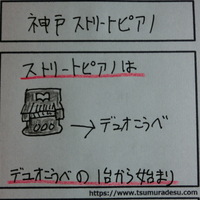 神戸 ストリートピアノ
ストリートピアノは
→デュオこうべ
デュオこうべの1台から始まり
https://www.tsumuradesu.com